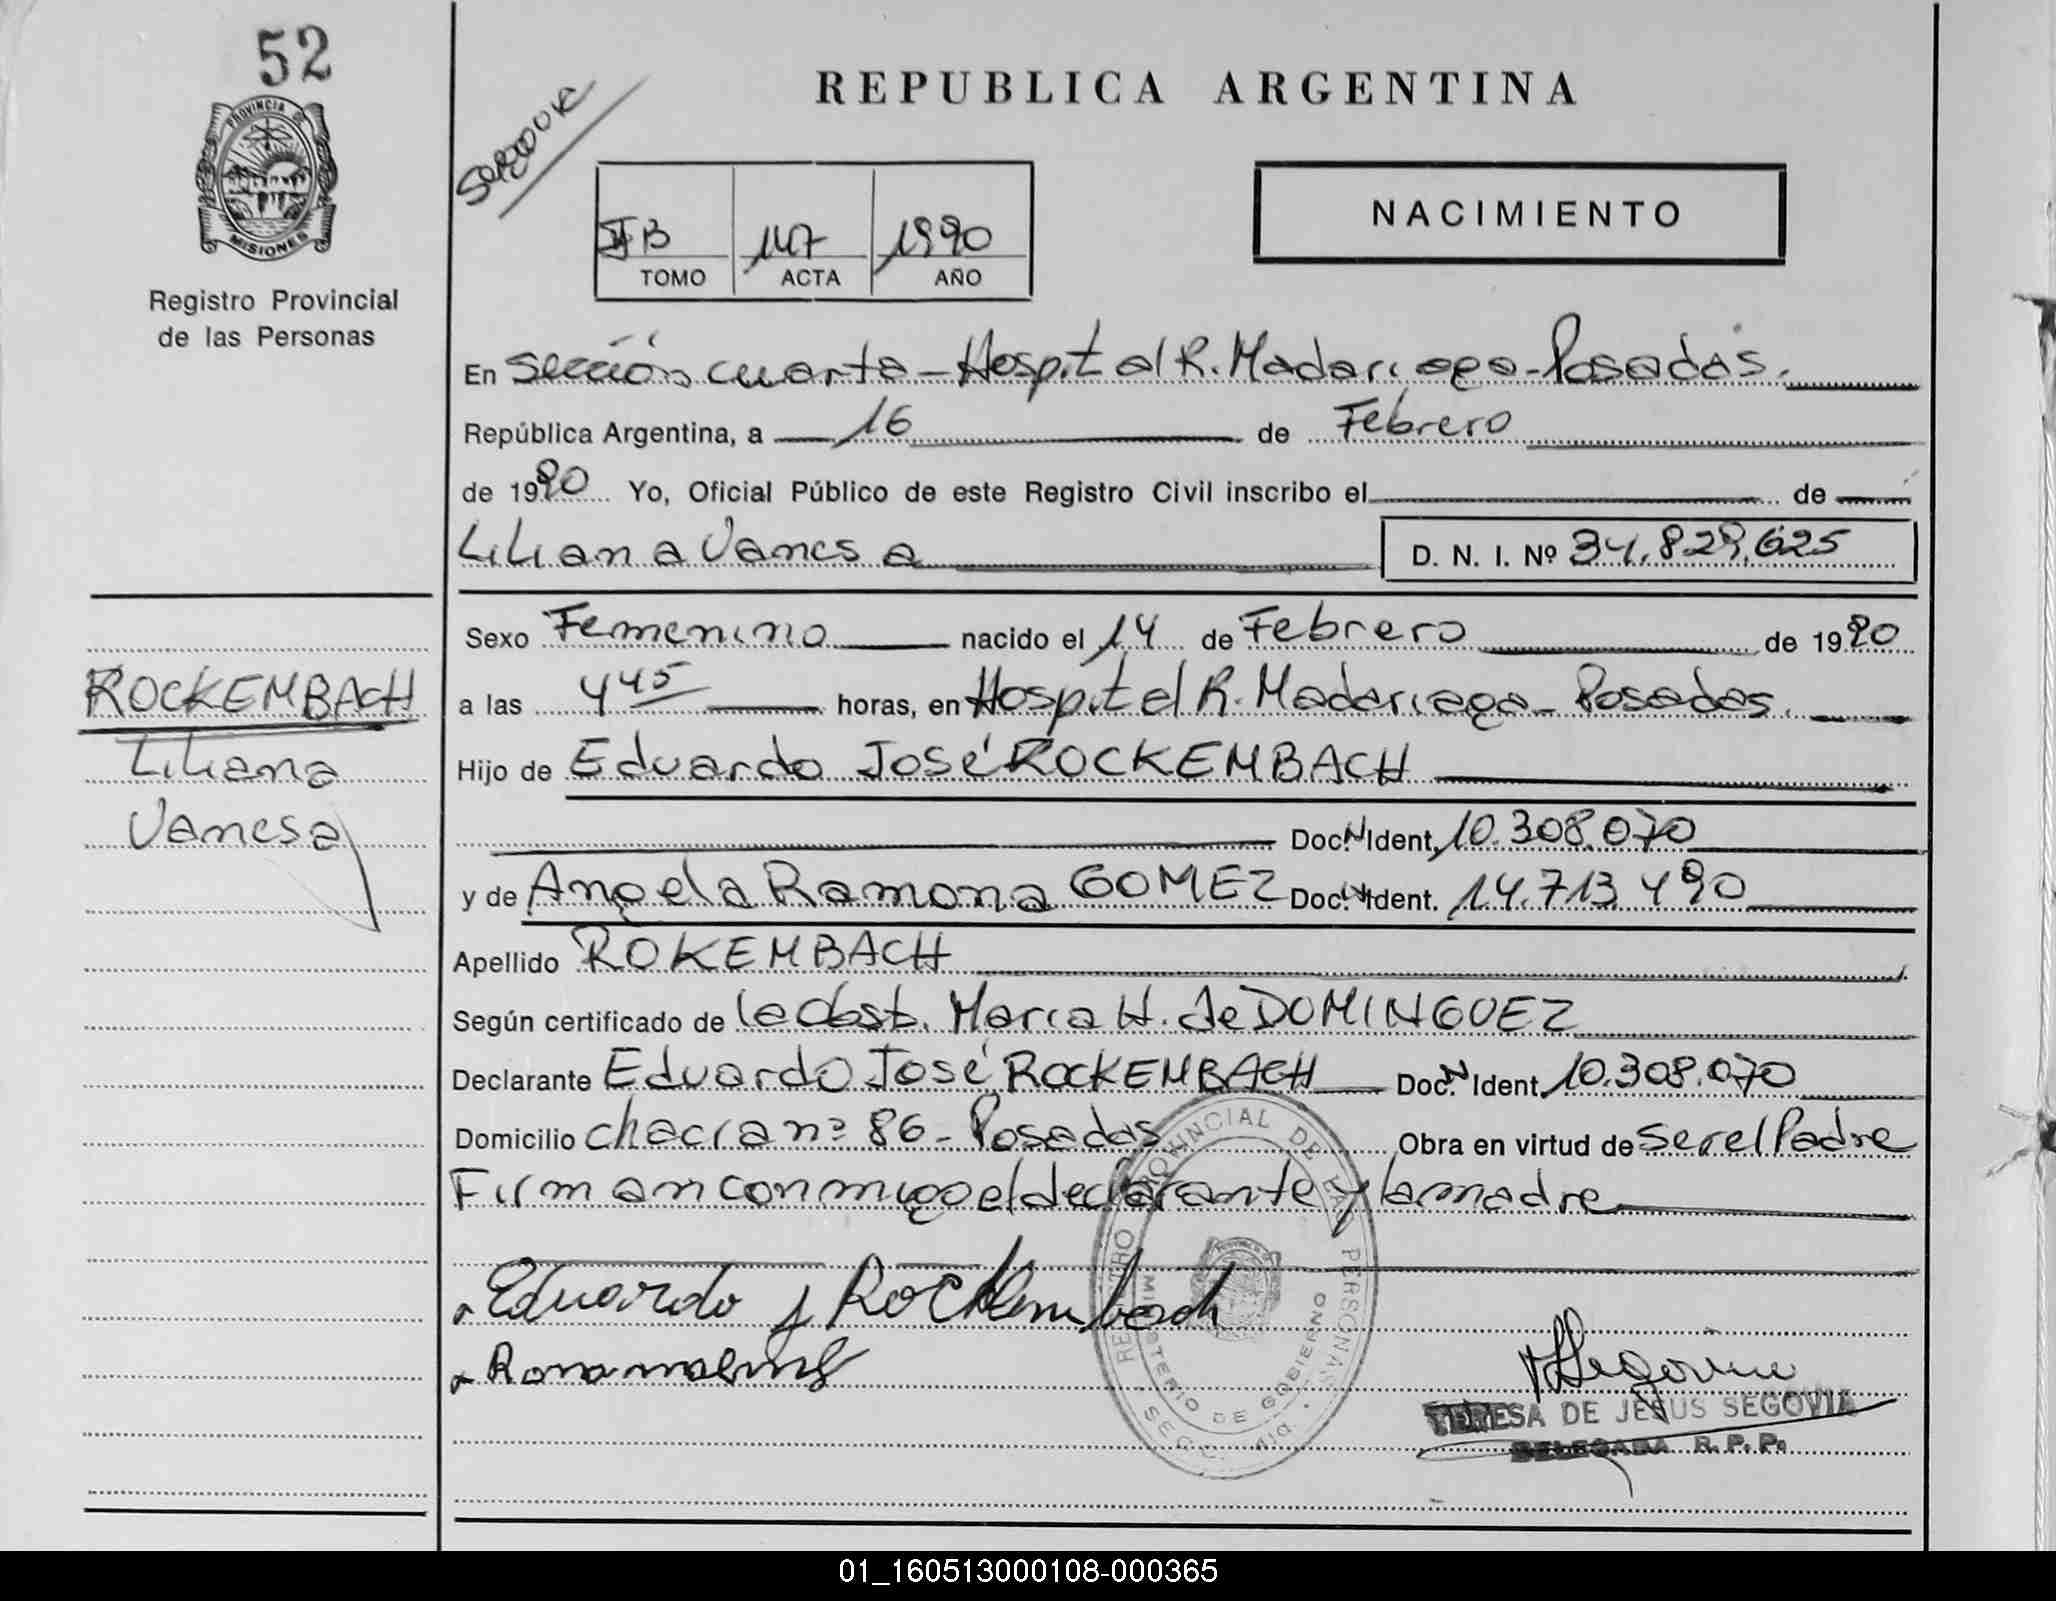 52
PROVINCIA DE
MISIONES
Registro Provincial
de las Personas
REPUBLICA ARGENTINA
NACIMIENTO
B 147 1990
TOMO ACTA AÑO
En Sección cuarta - Hospital R. Madariaga - Posadas.
República Argentina, a 16 de Febrero
de 1990 Yo, Oficial Público de este Registro Civil inscribo el de
Liliana Vanesa D. N. I. Nº 34.829.625
Sexo Femenino nacido el 14 de Febrero de 1990
a las 4 45 horas, en Hospital R. Madariaga - Posadas.
Hijo de Eduardo José ROCKEMBACH
Doc. N Ident. 10.308.070
y de Angela Ramona GOMEZ Doc. N Ident. 14.713.490
Apellido ROKEMBACH
Según certificado de la Obst. María H. de DOMINGUEZ
Declarante Eduardo José ROCKEMBACH Doc. N Ident. 10.308.070
Domicilio chacra nº 86 - Posadas Obra en virtud de ser el Padre
Firman conmigo el declarante y la madre
Eduardo J Rockembach
Segovia
TERESA DE JESUS SEGOVIA
DELEGADA R. P. P.
REGISTRO PROVINCIAL DE LAS PERSONAS
MINISTERIO DE GOBIERNO
ROCKEMBACH
Liliana
Vanesa
01_160513000108-000365